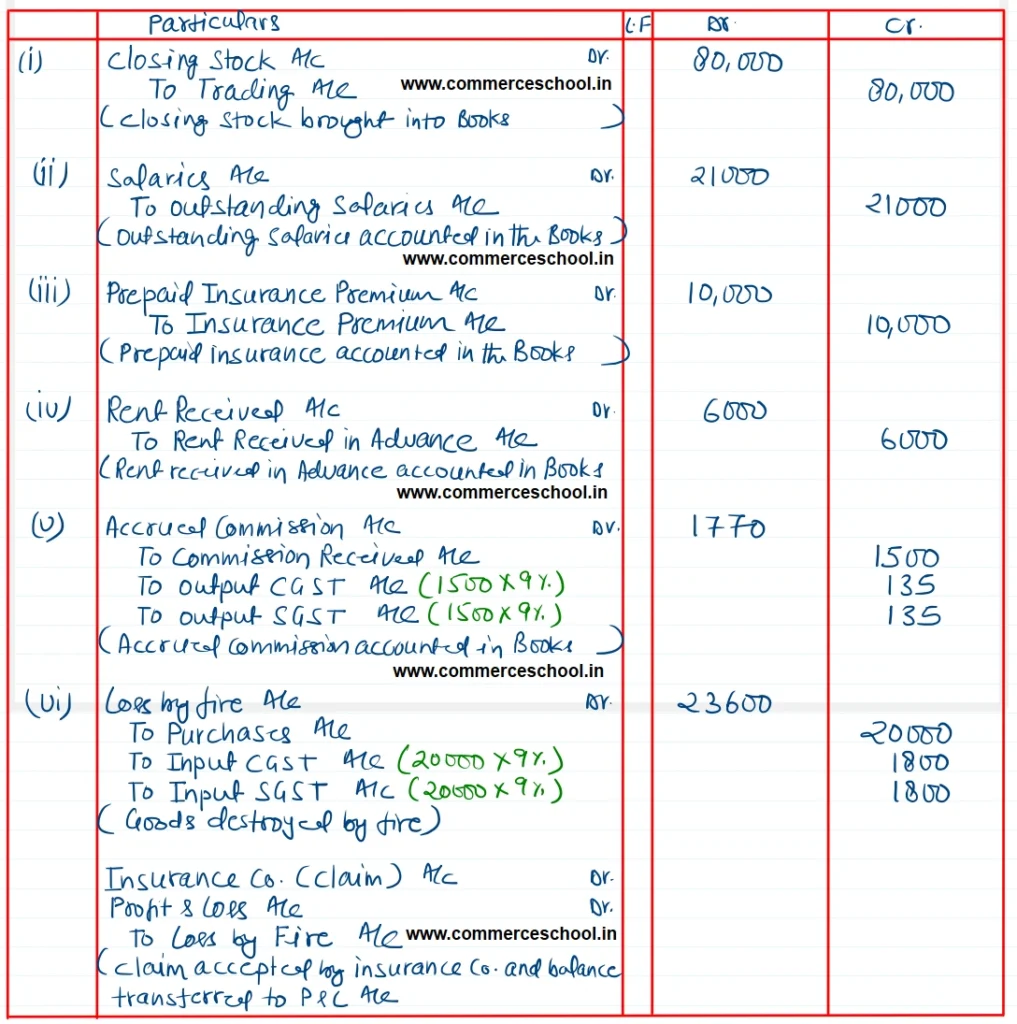 Particulars L.F Dr. Cr.
(i) Closing Stock A/c Dr. 80,000
To Trading A/c www.commerceschool.in 80,000
(Closing Stock brought into Books)
(ii) Salaries A/c Dr. 21000
To Outstanding Salaries A/c 21000
(Outstanding Salaries accounted in the Books)
www.commerceschool.in
(iii) Prepaid Insurance Premium A/c Dr. 10,000
To Insurance Premium A/c 10,000
(Prepaid insurance accounted in the Books)
(iv) Rent Received A/c Dr. 6000
To Rent Received in Advance A/c 6000
(Rent received in Advance accounted in Books
www.commerceschool.in
(v) Accrued Commission A/c Dr. 1770
To Commission Received A/c 1500
To output CGST A/c (1500 x 9%.) 135
To output SGST A/c (1500 x 9%.) 135
(Accrued Commission accounted in Books)
www.commerceschool.in
(vi) Loss by fire A/c Dr. 23600
To Purchases A/c 20000
To Input CGST A/c (20000 x 9%.) 1800
To Input SGST A/c (20000 x 9%.) 1800
(Goods destroyed by fire)
Insurance Co. (Claim) A/c Dr.
Profit & Loss A/c Dr.
To Loss by Fire A/c www.commerceschool.in
(claim accepted by insurance Co. and balance
transferred to P&L A/c